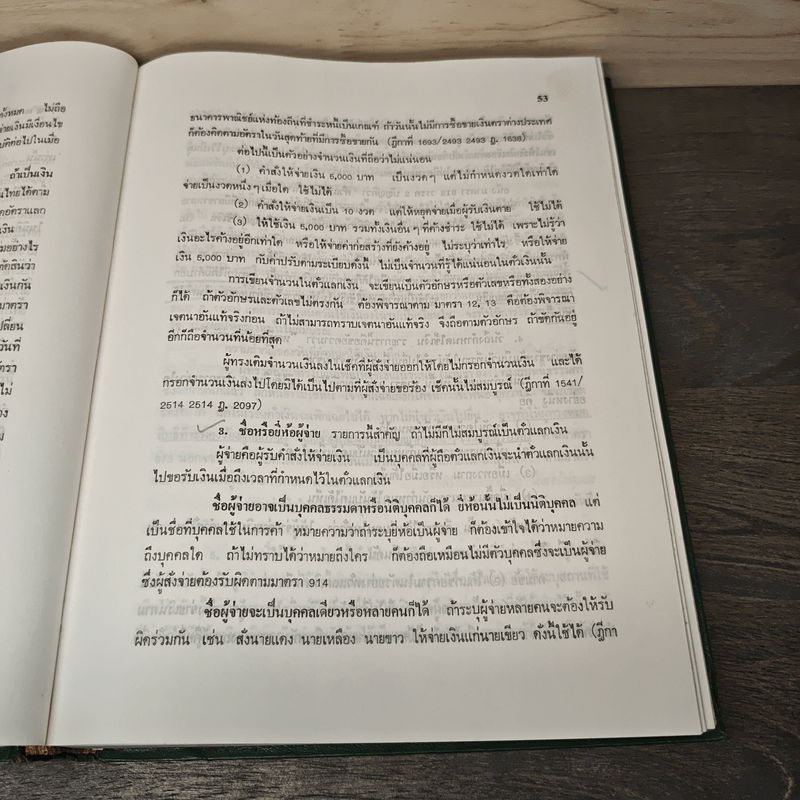 ทั้งหมด ไม่ถือ
จ่ายเงินมีเงื่อนไข
บัติต่อไปในเมื่อ
ถ้าเป็นเงิน
นไทยได้ตาม
เงิน
มอย่างไร
ตัดสินว่า
งเงินกัน
มาตรา
ปลี่ยน
วันที่
ตรา
ไม่
าง
าม
53
ธนาคารพาณิชย์แห่งท้องถิ่นที่ชำระหนี้เป็นเกณฑ์ ถ้าวันนั้นไม่มีการซื้อขายเงินตราต่างประเทศ
ก็ต้องคิดตามอัตราในวันสุดท้ายที่มีการซื้อขายกัน (ฎีกาที่ 1693/2493 2493 ฎ. 1638)
ต่อไปนี้เป็นตัวอย่างจำนวนเงินที่ถือว่าไม่แน่นอน
(1) คำสั่งให้จ่ายเงิน 5,000 บาท เป็นงวดๆ แต่ไม่กำหนดงวดใดเท่าใด
จ่ายเป็นงวดหนึ่งๆ เมื่อใด ใช้ไม่ได้
(2) คำสั่งให้จ่ายเงินเป็น 10 งวด แต่ให้หยุดจ่ายเมื่อผู้รับเงินตาย ใช้ไม่ได้
(3) ให้ใช้เงิน 5,000 บาท รวมทั้งเงินอื่นๆ ที่ค้างชำระ ใช้ไม่ได้ เพราะไม่รู้ว่า
เงินอะไรค้างอยู่อีกเท่าใด หรือให้จ่ายค่าก่อสร้างที่ยังค้างอยู่ ไม่ระบุว่าเท่าไร หรือให้จ่าย
เงิน 5,000 บาท กับค่าปรับตามระเบียบดั่งนี้ ไม่เป็นจำนวนที่รู้ได้แน่นอนในตั๋วเงินนั้น
การเขียนจำนวนในตั๋วแลกเงิน จะเขียนเป็นตัวอักษรหรือตัวเลขหรือทั้งสองอย่าง
ก็ได้ ถ้าตัวอักษรและตัวเลขไม่ตรงกัน ต้องพิจารณาตาม มาตรา 12, 13 คือต้องพิจารณา
เจตนาอันแท้จริงก่อน ถ้าไม่สามารถทราบเจตนาอันแท้จริง จึงถือตามตัวอักษร ถ้าขัดกันอยู่
อีกก็ถือจำนวนที่น้อยที่สุด
ผู้ทรงเติมจำนวนเงินลงในเช็คที่ผู้สั่งจ่ายออกให้โดยไม่กรอกจำนวนเงิน และได้
กรอกจำนวนเงินลงไปโดยมิได้เป็นไปตามที่ผู้สั่งจ่ายขอร้อง เช็คนั้นไม่สมบูรณ์ (ฎีกาที่ 1541/
2514 2514 ฎ. 2097)
3. ชื่อหรือยี่ห้อผู้จ่าย รายการนี้สำคัญ ถ้าไม่มีก็ไม่สมบูรณ์เป็นตั๋วแลกเงิน
ผู้จ่ายคือผู้รับคำสั่งให้จ่ายเงิน เป็นบุคคลที่ผู้ถือตั๋วแลกเงินจะนำตั๋วแลกเงินนั้น
ไปขอรับเงินเมื่อถึงเวลาที่กำหนดไว้ในตั๋วแลกเงิน
ชื่อผู้จ่ายอาจเป็นบุคคลธรรมดาหรือนิติบุคคลก็ได้ ยี่ห้อนั้นไม่เป็นนิติบุคคล แต่
เป็นชื่อที่บุคคลใช้ในการค้า หมายความว่าถ้าระบุยี่ห้อเป็นผู้จ่าย ก็ต้องเข้าใจได้ว่าหมายความ
ถึงบุคคลใด ถ้าไม่ทราบได้ว่าหมายถึงใคร ก็ต้องถือเหมือนไม่มีตัวบุคคลซึ่งจะเป็นผู้จ่าย
ซึ่งผู้สั่งจ่ายต้องรับผิดตามมาตรา 914
ชื่อผู้จ่ายจะเป็นบุคคลเดียวหรือหลายคนก็ได้ ถ้าระบุผู้จ่ายหลายคนจะต้องให้รับ
ผิดร่วมกัน เช่น สั่งนายแดง นายเหลือง นายขาว ให้จ่ายเงินแก่นายเขียว ดั่งนี้ใช้ได้ (ฎีกา